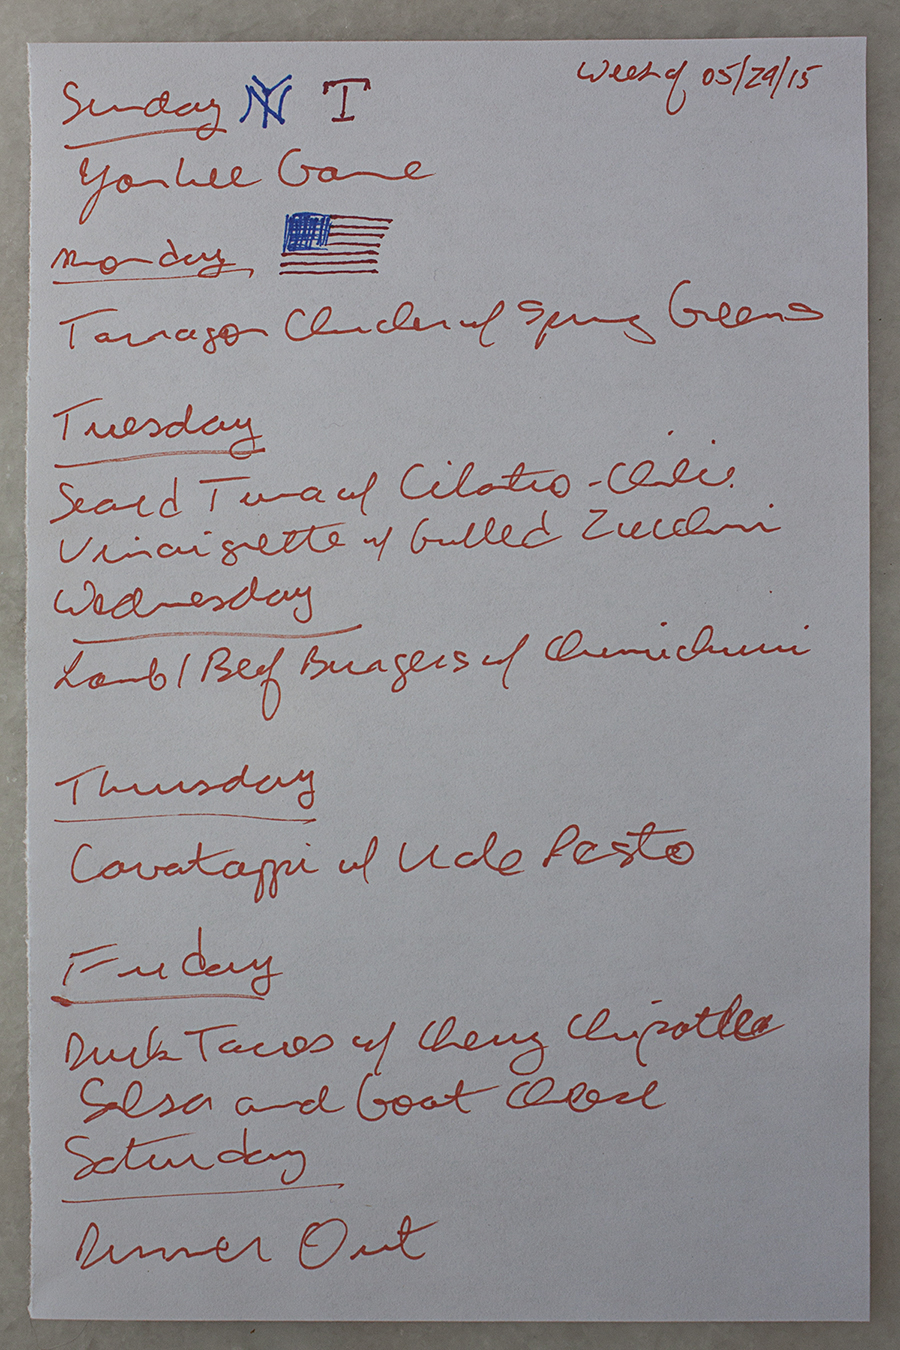 Week of 05/29/15
Sunday NY T
Yankee Game
Monday
Tarragon Chicken w/ Spring Greens
Tuesday
Seared Tuna w/ Cilatro-Chili
Vinaigrette w/ Grilled Zucchini
Wednesday
Lamb/Beef Burgers w/ Chimichurri
Thursday
Cavatappi w/ Kale Pesto
Friday
Duck Tacos w/ Cherry Chipotle
Salsa and Goat Cheese
Saturday
Dinner Out